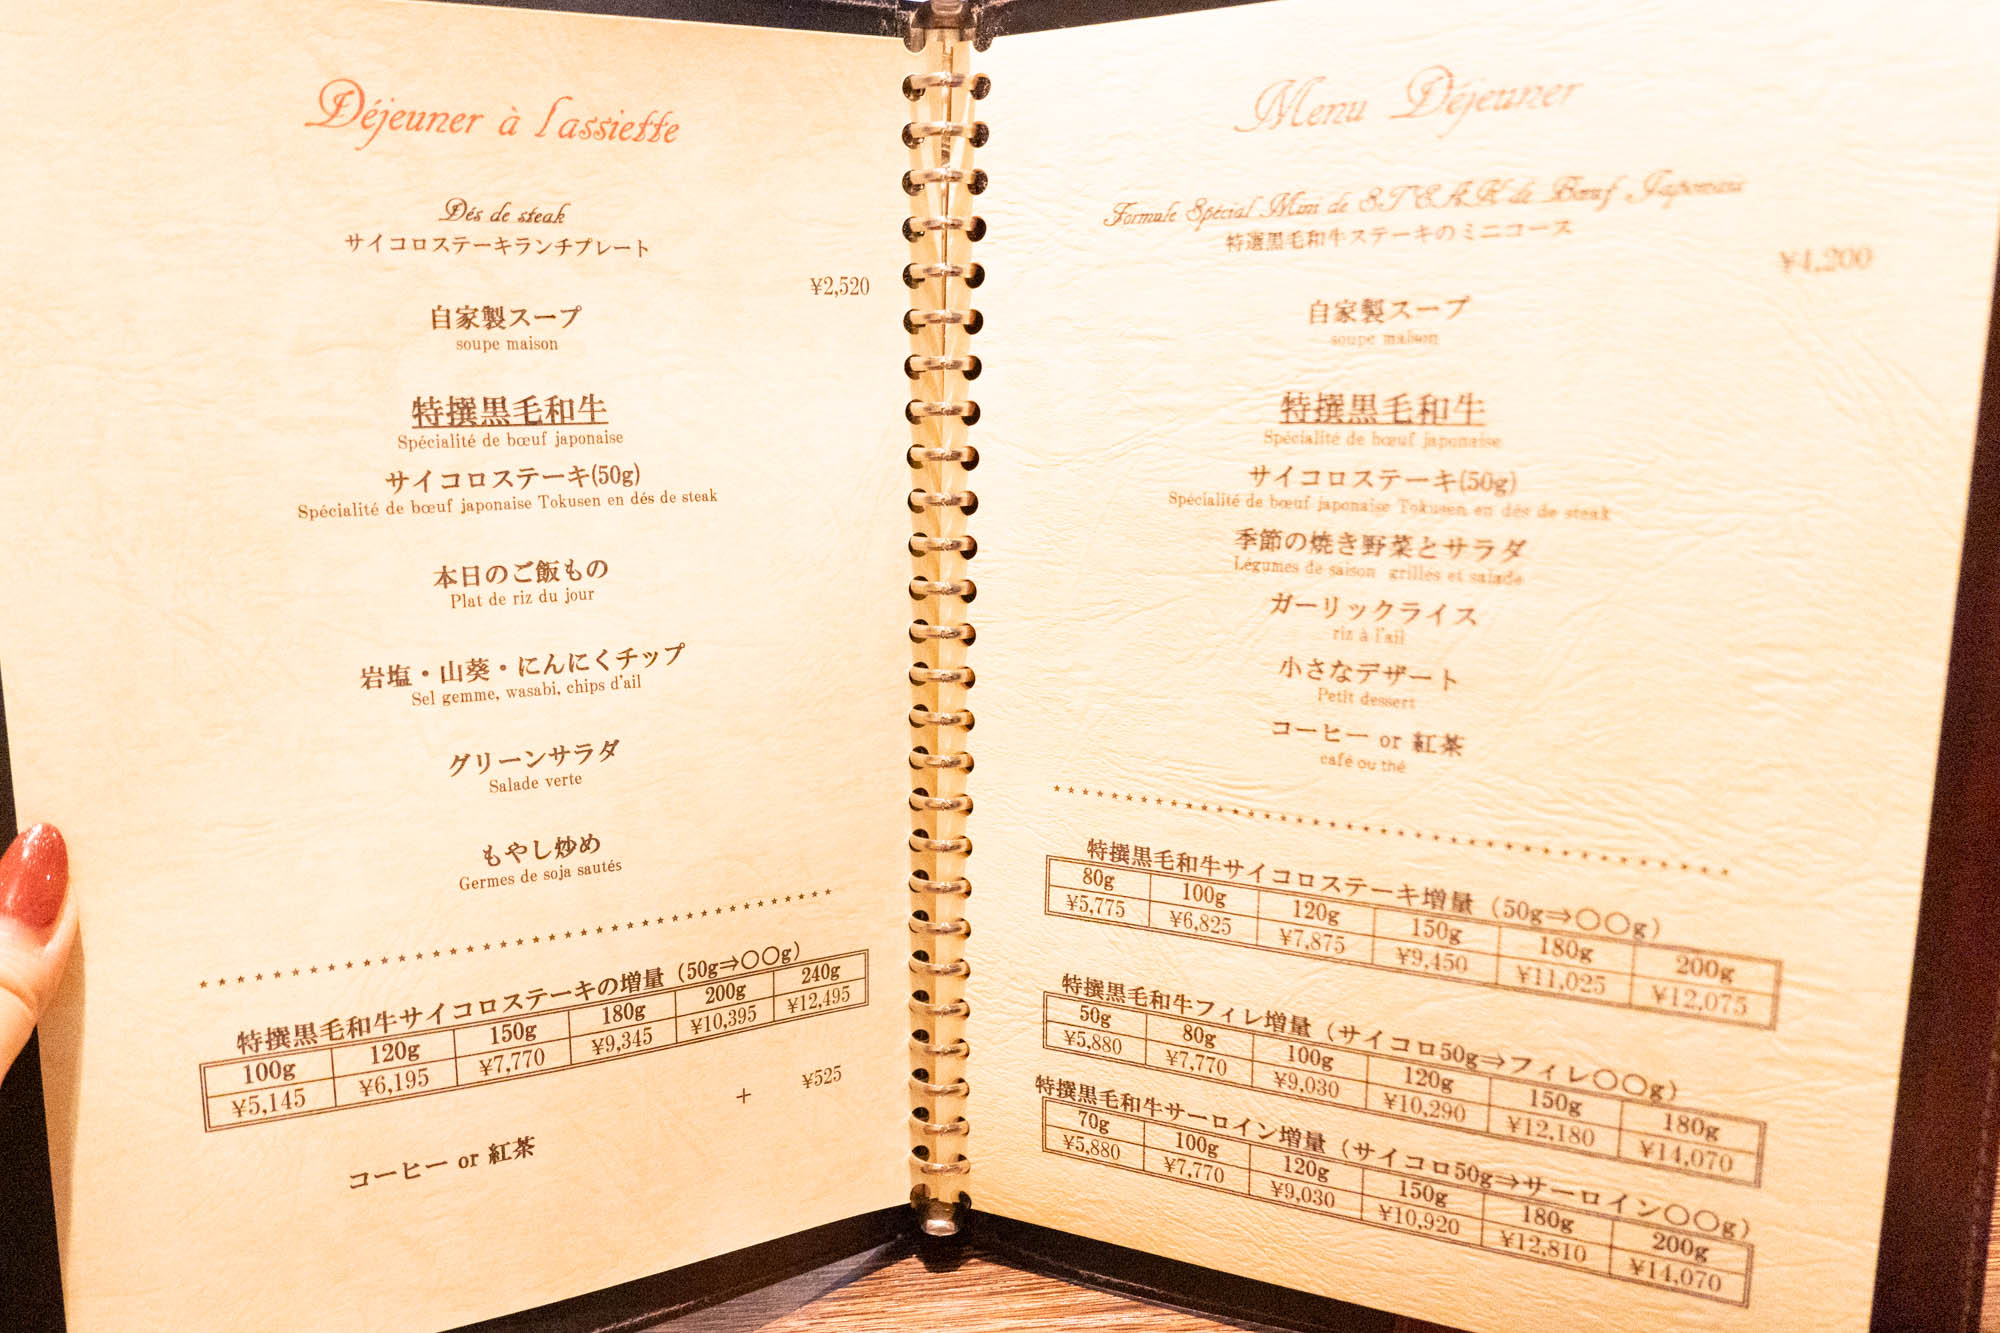 Déjeuner à lassiette
Dés de steak
サイコロステーキランチプレート
¥2,520
自家製スープ
soupe maison
特撰黒毛和牛
Spécialité de bœuf japonaise
サイコロステーキ(50g)
Spécialité de bœuf japonaise Tokusen en dés de steak
本日のご飯もの
Plat de riz du jour
岩塩・山葵・にんにくチップ
Sel gemme, wasabi, chips d'ail
グリーンサラダ
Salade verte
もやし炒め
Germes de soja sautés
特撰黒毛和牛サイコロステーキの増量（50g⇒〇〇g）
100g 120g 150g 180g 200g 240g
¥5,145 ¥6,195 ¥7,770 ¥9,345 ¥10,395 ¥12,495
+ ¥525
コーヒー or 紅茶
Menu Déjeuner
Formule Spécial Mini de STEAK de Bœuf Japonais
特選黒毛和牛ステーキのミニコース
¥4,200
自家製スープ
soupe maison
特撰黒毛和牛
Spécialité de bœuf japonaise
サイコロステーキ(50g)
Spécialité de bœuf japonaise Tokusen en dés de steak
季節の焼き野菜とサラダ
Légumes de saison grillés et salade
ガーリックライス
riz à l'ail
小さなデザート
Petit dessert
コーヒー or 紅茶
café ou thé
特撰黒毛和牛サイコロステーキ増量（50g⇒〇〇g）
80g 100g 120g 150g 180g 200g
¥5,775 ¥6,825 ¥7,875 ¥9,450 ¥11,025 ¥12,075
特撰黒毛和牛フィレ増量（サイコロ50g⇒フィレ〇〇g）
50g 80g 100g 120g 150g 180g
¥5,880 ¥7,770 ¥9,030 ¥10,290 ¥12,180 ¥14,070
特撰黒毛和牛サーロイン増量（サイコロ50g⇒サーロイン〇〇g）
70g 100g 120g 150g 180g 200g
¥5,880 ¥7,770 ¥9,030 ¥10,920 ¥12,810 ¥14,070